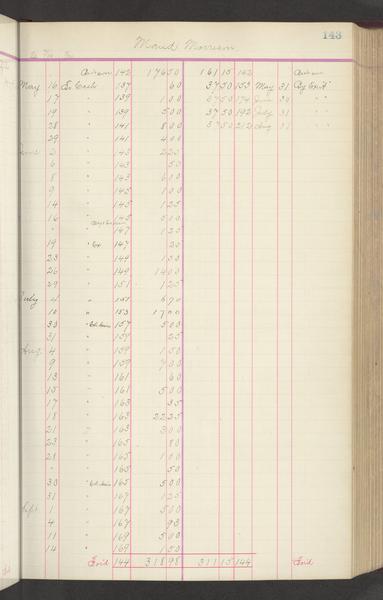 143
Maud Morrison
142 176 50 161 15 142
May 16 To Cash 137 60 37 50 153 May 31 By
17 " 139 1 00 37 50 174 June 30 " "
19 " 139 5 00 37 50 192 July 31 " "
28 " 141 8 00 37 50 212 Aug 31 " "
29 " 141 4 00
June 2 " 143 2 25
6 " 143 50
8 " 143 6 00
9 " 145 1 00
14 " 145 1 25
16 " 145 5 10
" 147 1 25
19 " 147 25
23 " 149 1 50
26 " 149 14 00
29 " 151 1 25
July 4 " 151 6 70
10 " 153 17 00
30 " 157 5 00
31 " 159 25
Aug 4 " 159 1 50
9 " 159 7 00
13 " 161 60
15 " 161 5 00
17 " 163 35
18 " 163 22 25
21 " 163 3 00
23 " 165 80
28 " 165 1 00
" " 165 50
30 " 165 5 00
31 " 167 1 25
Sept 1 " 167 5 00
4 " 167 93
11 " 169 5 00
14 " 169 1 50
Ford 144 318 98 311 15 144 Ford